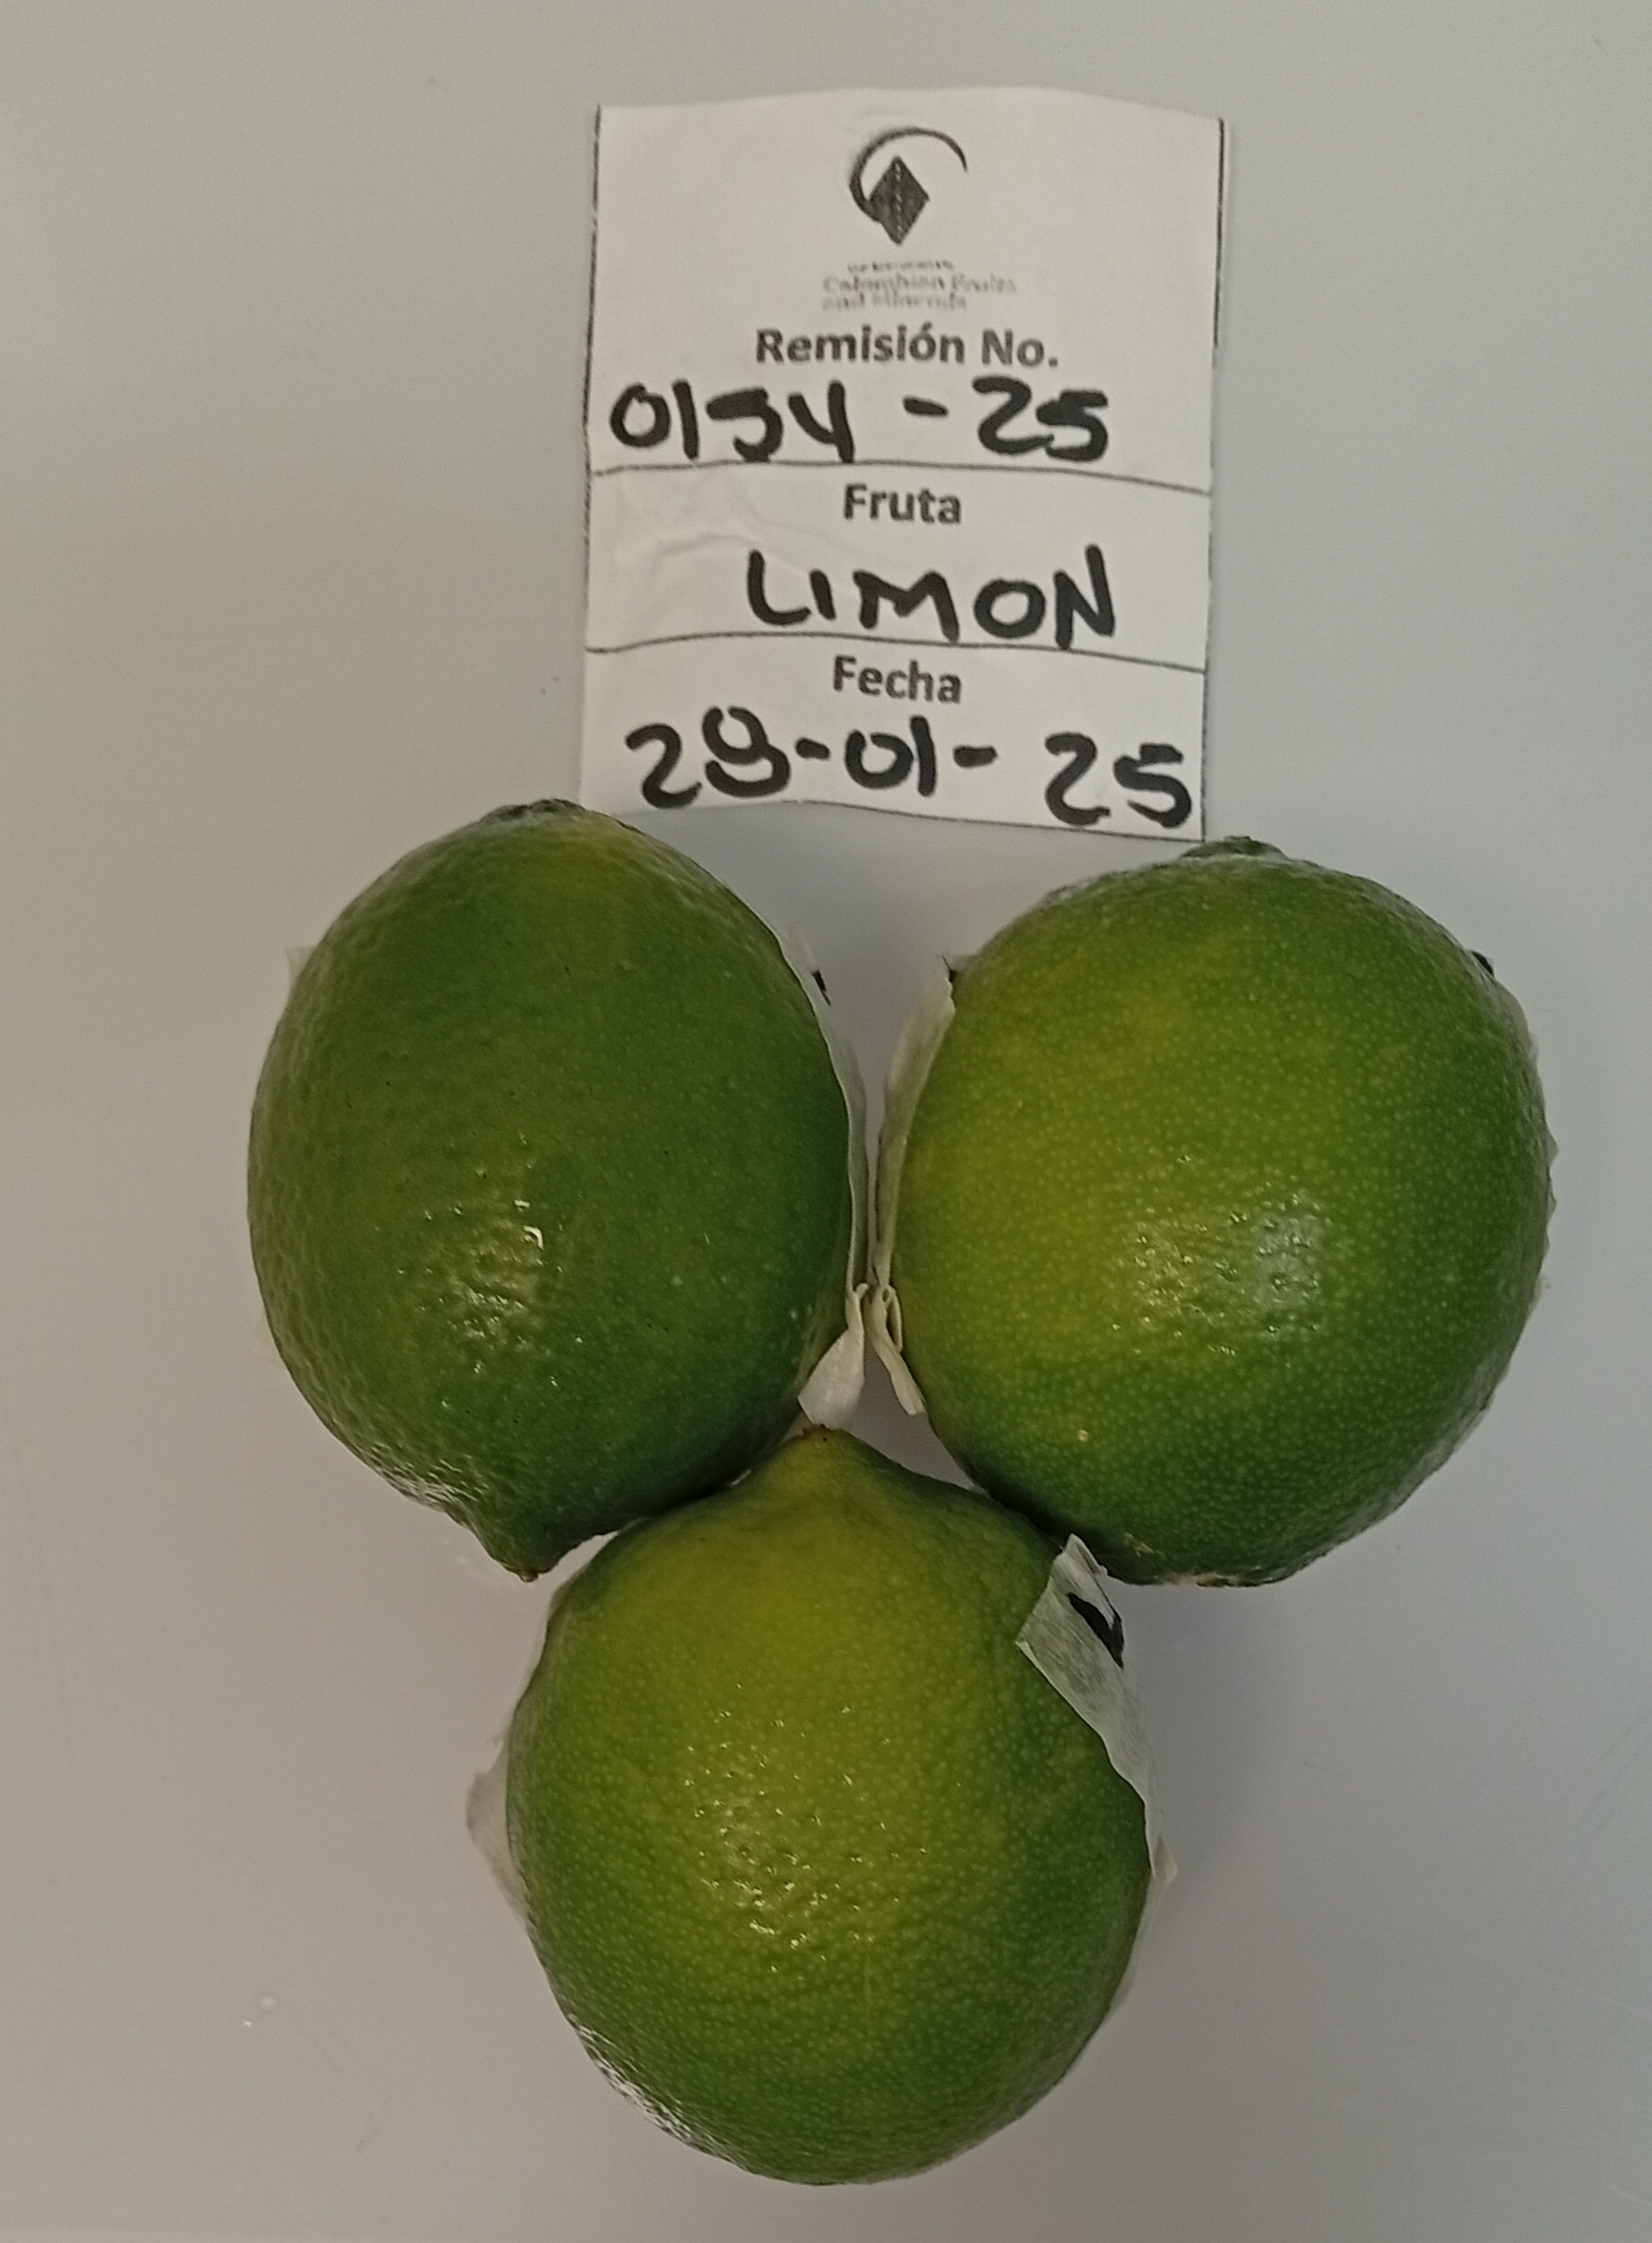 Colombian Fruits
and Minerals
Remisión No.
0154-25
Fruta
LIMON
Fecha
29-01-25